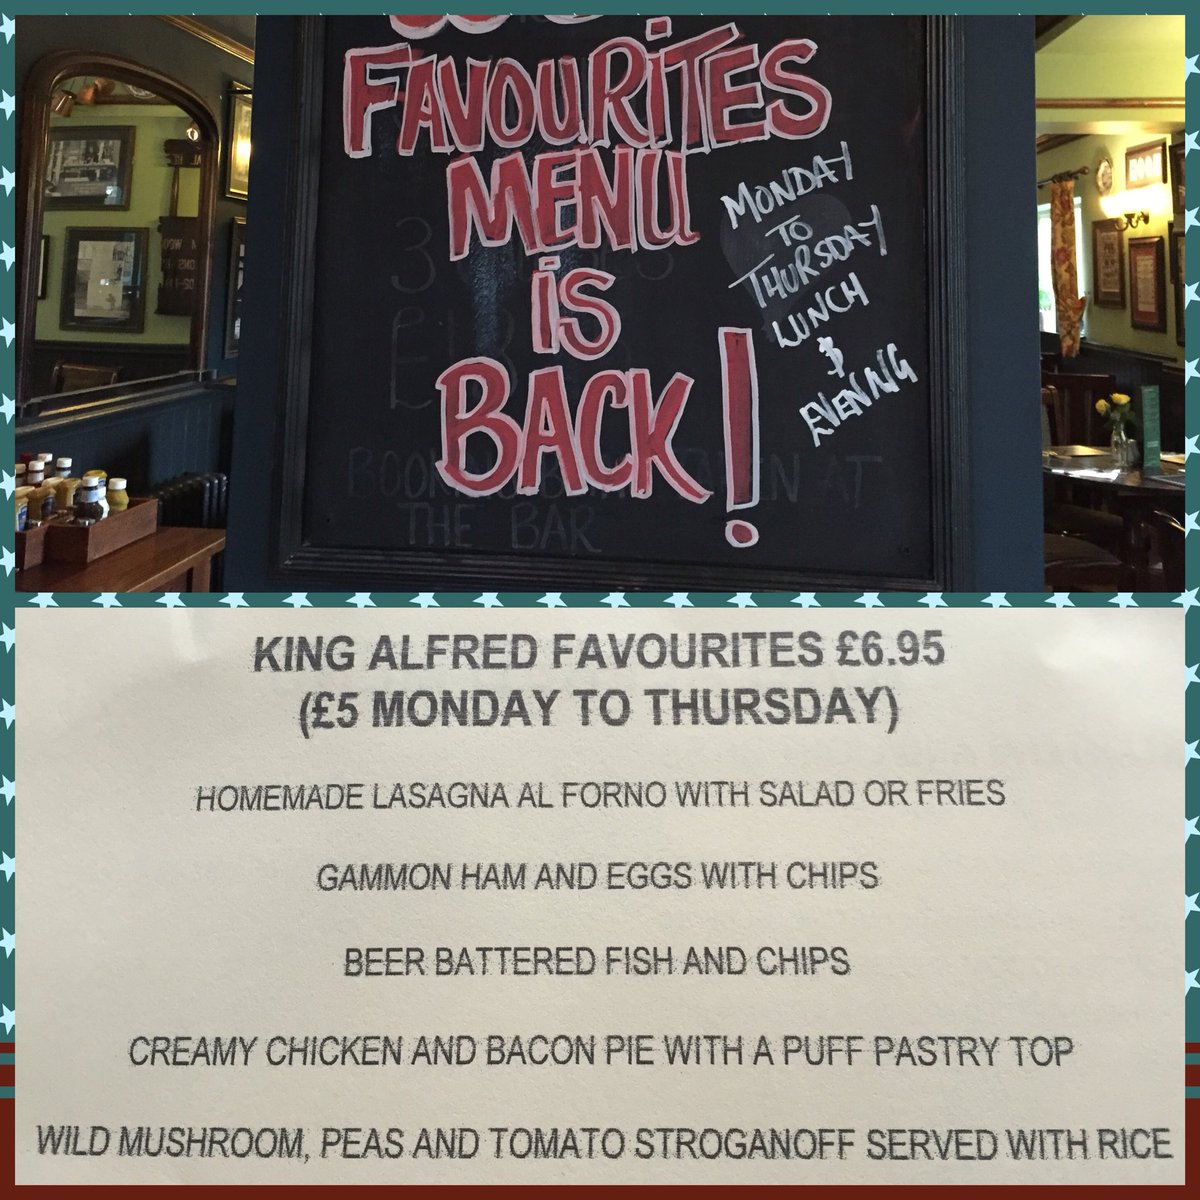 FAVOURITES
MENU
IS
BACK!
MONDAY
TO
THURSDAY
LUNCH
&
EVENING
THE BAR
KING ALFRED FAVOURITES £6.95
(£5 MONDAY TO THURSDAY)
HOMEMADE LASAGNA AL FORNO WITH SALAD OR FRIES
GAMMON HAM AND EGGS WITH CHIPS
BEER BATTERED FISH AND CHIPS
CREAMY CHICKEN AND BACON PIE WITH A PUFF PASTRY TOP
WILD MUSHROOM, PEAS AND TOMATO STROGANOFF SERVED WITH RICE